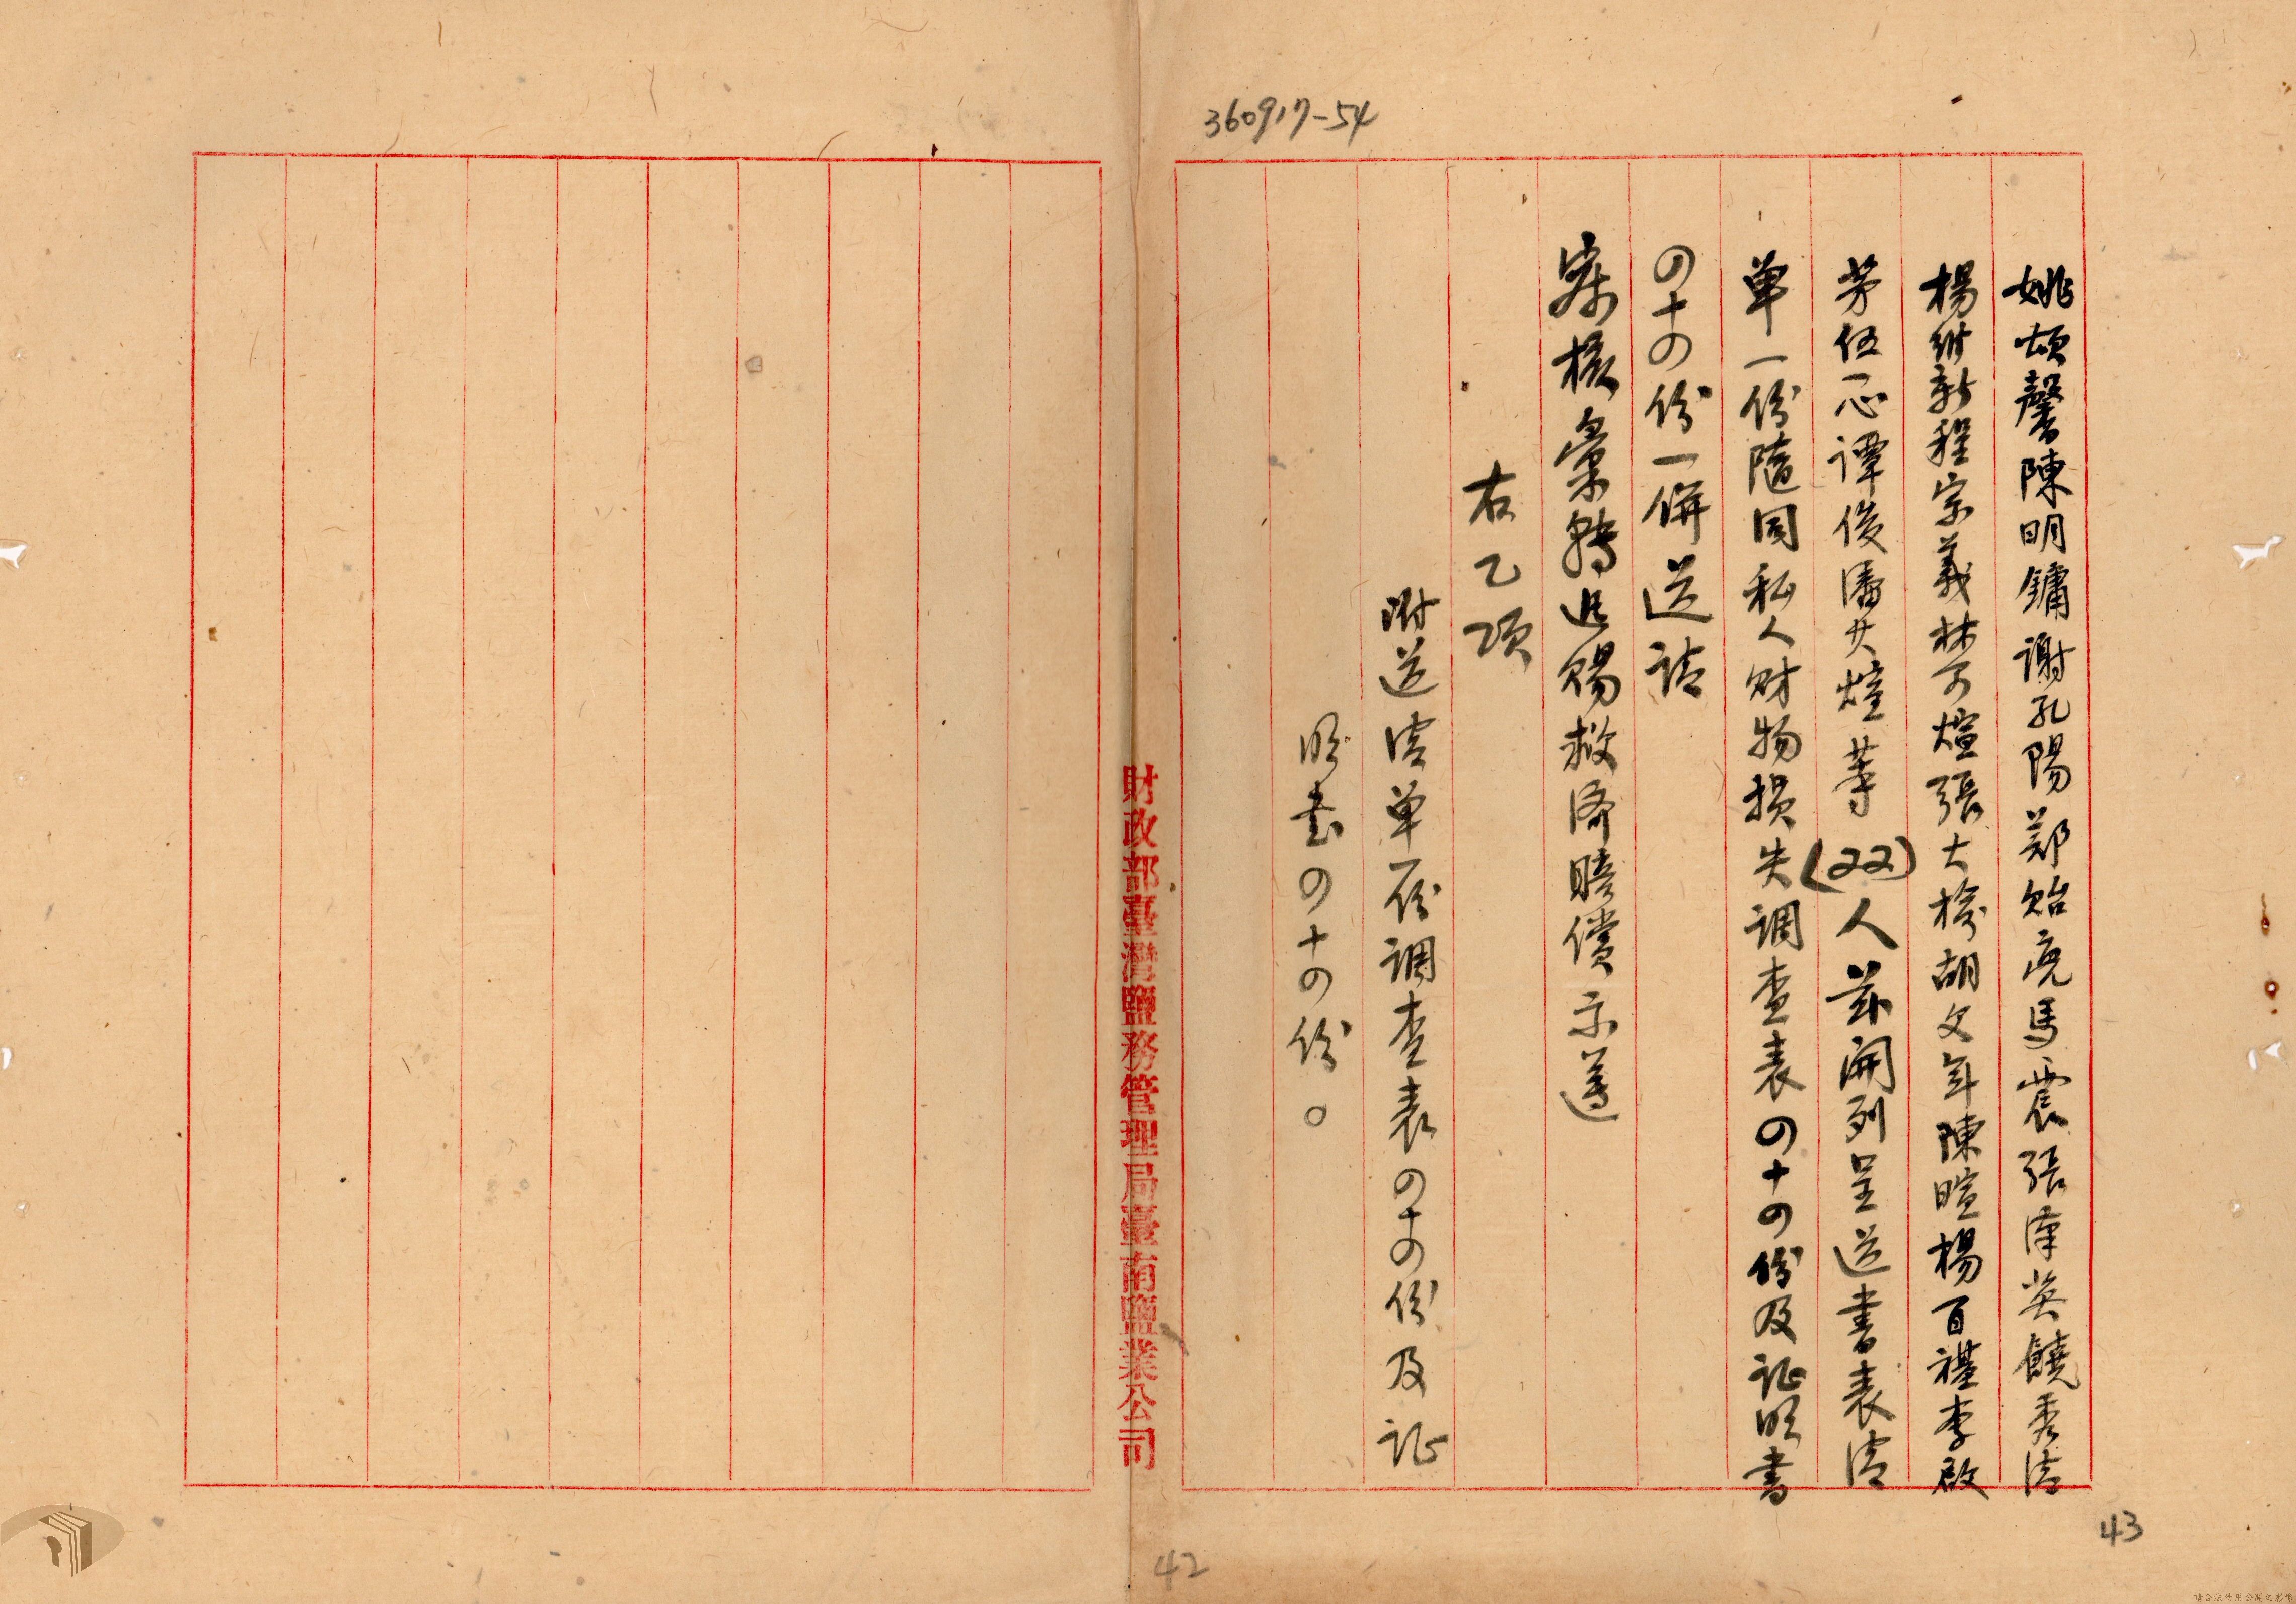 360917-54
姚頌馨陳明鏞謝孔陽鄭貽亮馬震張澤英饒秀清
楊紹新程宗義林可煊張大榕胡文年陳暄楊百禮李啟
芳伍一心譚俊潘廿煊等(22)人茲開列呈送書表清
单一份隨同私人财物損失調查表の十の份及证明書
の十の份一併送請
察核彙轉迅賜救済賠償示遵
右乙項
附送清单一份調查表の十の份及证
明書の十の份。
財政部臺灣鹽務管理局臺南鹽業公司
43
42
請合法使用公開之影像